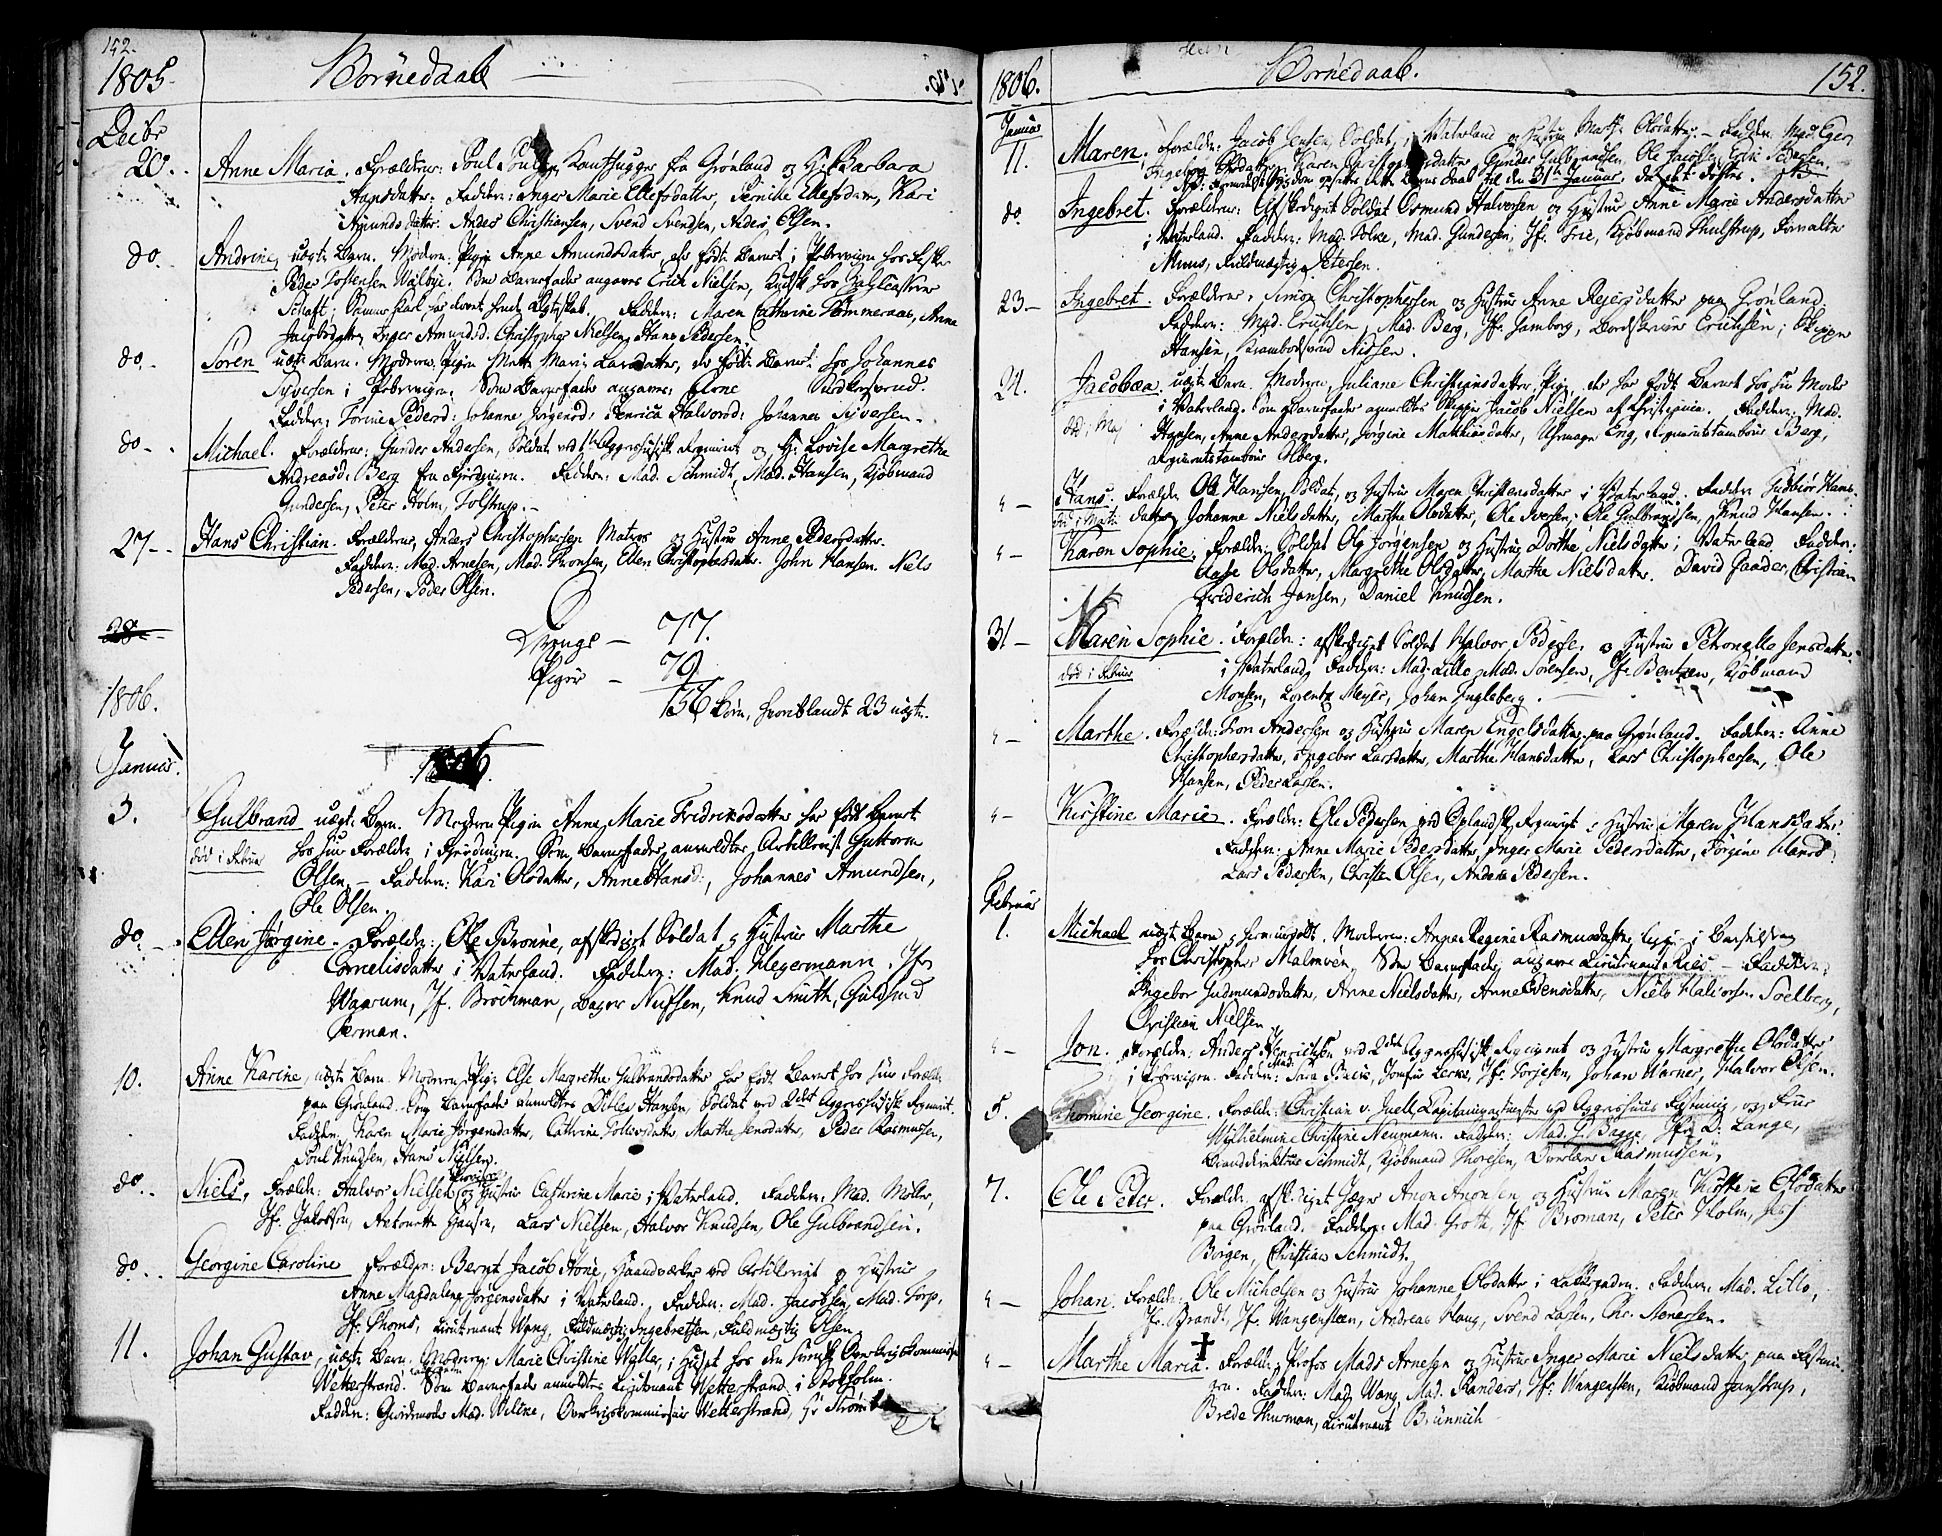 152.
1805.
Börnedaab
Decbr
20. Anne Maria. Forældrene: Poul Poulsen, fra Grønland og H: Barbara
Hansdatter. Fadderne: Inger Marie Ellefsdatter, Pernille Ellefsdatter, Kari
Amundsdatter. Anders Christiansen, Svend Svendsen, Anders Olsen.
do. Andrine, uægte Barn. Moderen: Pigen Anne Amundsdatter, der fødte Barnet i Pebervigen hos
Peder Som Barnefader angaves Erich Nielsen,
Fadderne: Maren Cathrine Anne
Jacobsdatter, Inger Amundsd. Christopher Nielsen, Hans Pedersen.
do. Sören uægte Barn. Moderen: Pigen Mette Marie Larsdatter, der fødte Barnet hos Johannes
Syversen i Pebervigen. Som Barnefader angaves Arne
Fadder: Torine Pedersd: Johanne Jörgensd: Henrica Halvorsd: Johannes Syversen.
do. Michael. Forældrene: Gunder Andersen, Soldat ved Aggershusiske Regiment og H: Lovise Margrethe
Andreasd: Berg fra Fjerdingen. Fadder: Mad. Schmidt, Mad. Hansen, Kjöbmand
Gundersen, Peter Holm, Tolstrup.
27. Hans Christian. Forældrene, Anders Christophersen Matros og Hustrue Anne Pedersdatter.
Fadder: Mad. Arnesen, Mad. Aronsen, Ellen Christophersdatter. John Hansen. Niels
Pedersen, Peder Olsen.
28
Drenge — 77.
Piger — 79
156 Börn, hvoriblandt 23 uægte.
1806.
Januar.
1806.
3. Gulbrand uægte Barn. Moderen Pigen Anne Marie Fridriksdatter har født Barnet
hos sine Forældre i Fjerdingen. Som Barnefader anmeldtes Artillerist Guttorm
død i Februar
Olsen. — Fadder: Kari Olsdatter, Anne Hansd:, Johannes Amundsen,
Ole Olsen.
do. Ellen Jörgine. Forældre: Ole Bronne, afskediget Soldat og Hustrue Marthe
Cornelisdatter i Vaterland. Fadder: Mad. Hegermann. Jfr.
Waarum, Jf. Brochman, Bager Nissen, Knud Smith, Guldsmed
Perman.
10. Anne Karine, uægte Barn. Moderen, Pige Else Margrethe Gulbrandsdatter har født Barnet hos sine Forældre
paa Grönland. Som Barnefader anmeldtes Ditlev Hansen, Soldat ved 2det Aggershusiske Regiment.
Fadder: Karen Marie Jörgensdatter, Cathrine Tollevsdatter, Marthe Jensdatter, Peder Rasmussen,
Poul Knudsen, Hans Nielsen.
do. Niels, Forældre: Halvor Nielsen og Hustrue Cathrine Marie i Vaterland. Fadder: Mad. Möller,
Jf. Jakobsen, Antonette Hansen, Lars Nielsen, Halvor Knudsen, Ole Gulbrandsen.
do. Georgine Caroline Forældre: Bernt Jacob Höne, Haandværker ved Artilleriet og Hustrue
Anne Magdalene Jörgensdatter i Vaterland. Fadder: Mad. Jacobsen, Mad. Torp,
Jf. Thoms, Lieutenant Wang, Fuldmægtig Ingebretsen, Fuldmægtig Olsen.
11. Johan Gustav, uægte Barn. Moderen: Marie Christine Wåller, i Huset hos den Svenske
Wetterstrand. Som Barnefader anmeldtes Lieutenant Wetterstrand i Stokholm.
Fadder: Mad. Wilene, Wetterstrand, Hr Ström
1806.
Börnedaab.
152.
Januar
11. Maren. Forældre: Jacob Jensen, Soldat, i Vaterland og Hustrue Marthe Olsdatter. — Fadder: Mad Eger,
Ingeborg Olsdatter, Karen Christophersdatter, Gunder Gulbrandsen, Ole Jacobsen, Erik Pedersen
den 31te Januar
do. Ingebret. Forældrene: Afskediget Soldat Osmund Halversen og Hustrue Anne Marie Andersdatter
i Vaterland. Fadder: Mad. Mad. Gundersen, Jf. Kjöbmand Thulstrup, Forvalter
Muus, Fuldmægtig Petersen.
23. Ingebret. Forældrene, Simon Christophersen og Hustrue Anne Rejersdatter paa Grönland.
Fadder: Mad. Erichsen, Mad. Berg, Jf. Tamborg, Erichsen, Skipper
Hansen, Nissen.
24. Jacobæa uægte Barn. Moderen, Juliane Christiansdatter, Pige, der har født Barnet hos sin Moder
i Vaterland. Som Barnefader anmeldtes Skipper Jacob Nielsen af Christiania. Fadder: Mad.
død i Maj
Hansen, Anne Andersdatter, Jörgine Matthiasdatter, Uhrmager Eng, Regimentstambour Berg,
Regimentstambour Olberg.
" — Hans. Forældre Ole Hansen, Soldat, og Hustrue Maren Christensdatter i Vaterland. Fadder Gudbiör Hans-
datter, Johanne Nielsdatter, Marthe Olsdatter, Ole Iversen, Ole Gulbrandsen, Knud Hansen.
" — Karen Sophie. Forældre: Soldat Ole Jörgensen og Hustrue Dorthe Nielsdatter i Vaterland Fadder:
Aase Olsdatter, Margrethe Olsdatter, Marthe Nielsdatter. David Gaarder, Christian
Friderich Jansen, Daniel Knudsen.
31 — Maren Sophie. Forældre: afskediget Soldat Halvor Pedersen og Hustrue Petronelle Jensdatter
i Vaterland. Fadder: Mad. Lillo, Mad. Sörensen, Jfr Bentzen, Kjöbmand
død i Februar
Monsen, Lorentz Meyer, Johan Fugleberg.
" — Marthe. Forældre: Iron Andersen og Hustrue Maren Engelsdatter paa Grønland. Fadder: Anne
Christophersdatter, Ingebor Larsdatter, Marthe Hansdatter, Lars Christophersen, Ole
Hansen, Peder Larsen.
" — Kirstine Marie. Forældre: Ole Pedersen ved Oplandske Regiment og Hustrue Maren Hansdatter.
Fadder: Anne Marie Pedersdatter, Inger Marie Pedersdatter, Jörgine Hansd.
Lars Pedersen, Christen Olsen, Anders Pedersen.
Februar
1. Michael uægte Barn, hjemmedøbt. Moderen: Anne Regine Rasmusdatter,
hos Christopher Malmøen, Som Barnefader angaves Lieutenant Ries — Fadder:
Ingebor Gudmundsdatter, Anne Nielsdatter, Anne Evensdatter, Niels Halvorsen Soelberg,
Christian Nielsen
" — Jon. Forældre: Anders Henrichsen ved 2det Aggershusiske Regiment og Hustrue Margrethe Olsdatter
i Pebervigen. Fadder: Mad Sara Jomfru Lerke, Jfr. Torjesen, Johan Warner, Halvor Olsen.
5. Thomine Georgine. Forældre: Christian v. Juell, ved Aggershuus Fæstning, og Frue
Wilhelmine Christine Neumann. Fadder: Mad. G. Bagge, Jfr. D. Lange,
Branddirekteur Schmidt, Kjöbmand Thoresen, Rasmussen,
7. Ole Peder. Forældre, afskediget Jæger Anon Anonsen og Hustrue Maren Kirstine Olsdatter
paa Grönland. Fadder: Mad. Groth, Jf. Broman, Peter Holm,
Borgen, Christian Schmidt.
" — Johan. Forældre: Ole Michelsen og Hustrue Johanne Olsdatter i Lakkegaden. Fadder: Mad. Lillo,
Jfr. Brandt, Jf. Wangensteen, Andreas Haug, Svend Lasen, Chr. Tönersen.
" — Marthe Maria. Forældre, Profos Mads Arnesen og Hustrue Inger Marie Nielsdatter paa Fæstnin-
gen. Fadder: Mad. Wang, Mad. Randers, Jf. Wangensten, Kjöbmand Jenstrup,
Brede Thurman, Lieutenant Brünnich